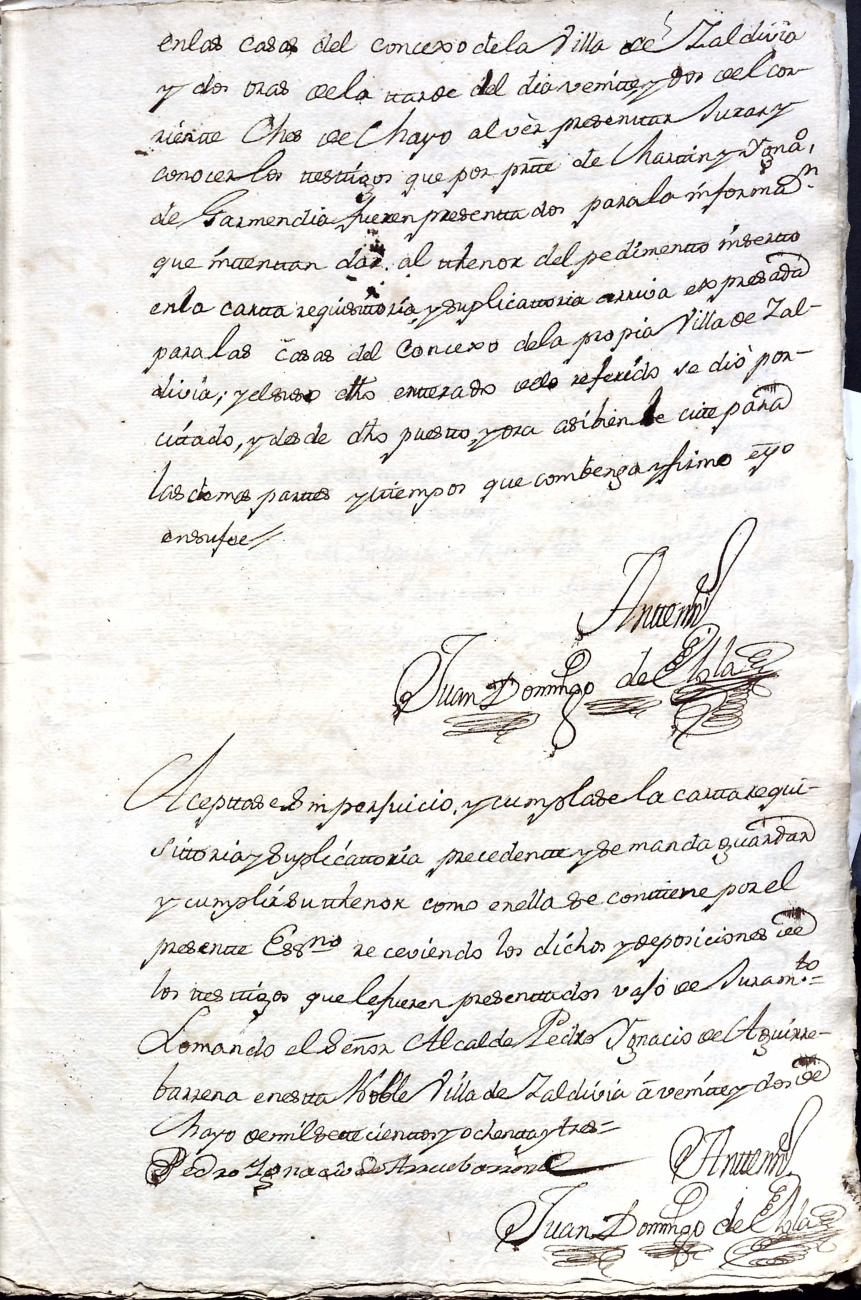 enlas casas del concexo dela Villa de Zaldivia
y dos oras dela ttarde del dia veintte y dos del cor-
riente Mes de Mayo al vèr presenttar Jurar y
conocer los ttesttigos que por prtte de Martin y Ygnaº,
de Garmendia fueren presenttados para la informaⁿ
que inttenttan dar al tthenor del pedimentto insertto
enla cartta requisittoria, y suplicattoria arriva expresada
para las casas del Concexo dela propia Villa de Zal-
divia; y el suso dho entterado delo referido se diò por
cittado, y desde dho puestto, y ora asibien se citte para
las demas parttes y ttiempos que combenga y firmo eyo
ensufee//
Anttemi
Juan Domingo de Elola
Acepttase sin perjuicio, y cumplase la cartta requi-
sittoria y Suplicattoria precedentte y se manda guardar
y cumplir su tthenor como enella se conttiene por el
presentte Essno receviendo los dichos y deposiciones de
los ttesttigos que le fueren presenttados vajo de Juramto=
Lo mando el Señor Alcalde Pedro Ygnacio de Aguirre-
barrena enestta Noble Villa de Zaldivia à veintte y dos de
Mayo de mil settecienttos y ochentta y tres=
Pedro Ygnacio de Aguirrebarrena
Anttemi
Juan Domingo de Elola